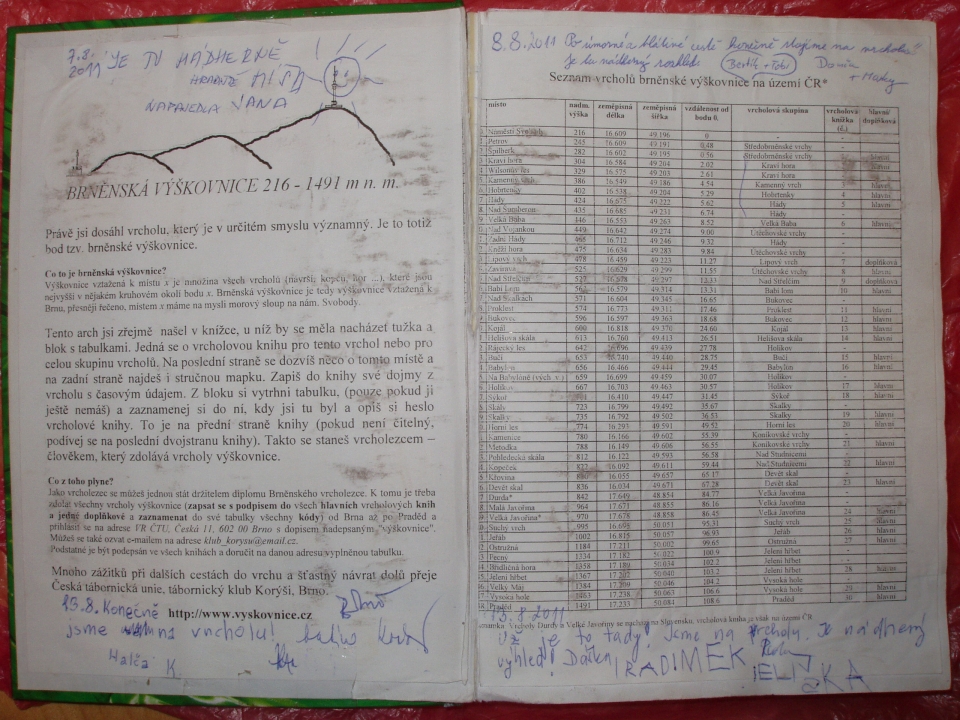 7.8. 2011 JE TU NÁDHERNĚ
MÍŠA
NAPAJEDLA JANA
BRNĚNSKÁ VÝŠKOVNICE 216 - 1491 m n. m.
Právě jsi dosáhl vrcholu, který je v určitém smyslu významný. Je to totiž
bod tzv. brněnské výškovnice.
Co to je brněnská výškovnice?
Výškovnice vztažená k místu x je množina všech vrcholů (návrší, kopců, hor ...), které jsou
nejvyšší v nějakém kruhovém okolí bodu x. Brněnská výškovnice je tedy výškovnice vztažená k
Brnu, přesněji řečeno, místem x máme na mysli morový sloup na nám. Svobody.
Tento arch jsi zřejmě našel v knížce, u níž by se měla nacházet tužka a
blok s tabulkami. Jedná se o vrcholovou knihu pro tento vrchol nebo pro
celou skupinu vrcholů. Na poslední straně se dozvíš něco o tomto místě a
na zadní straně najdeš i stručnou mapku. Zapiš do knihy své dojmy z
vrcholu s časovým údajem. Z bloku si vytrhni tabulku, (pouze pokud ji
ještě nemáš) a zaznamenej si do ní, kdy jsi tu byl a opiš si heslo
vrcholové knihy. To je na přední straně knihy (pokud není čitelný,
podívej se na poslední dvojstranu knihy). Takto se staneš vrcholezcem –
člověkem, který zdolává vrcholy výškovnice.
Co z toho plyne?
Jako vrcholezec se můžeš jednou stát držitelem diplomu Brněnského vrcholezce. K tomu je třeba
zdolat všechny vrcholy výškovnice (zapsat se s podpisem do všech hlavních vrcholových knih
a jedné doplňkové a zaznamenat do své tabulky všechny kódy) od Brna až po Praděd a
přihlásit se na adrese TR ČTU, Česká 11, 602 00 Brno s dopisem nadepsaným "výškovnice".
Můžeš se také ozvat e-mailem na adrese klub_korysw@email.cz.
Podstatné je být podepsán ve všech knihách a doručit na danou adresu vyplněnou tabulku.
Mnoho zážitků při dalších cestách do vrchu a šťastný návrat dolů přeje
Česká tábornická unie, tábornický klub Korýši, Brno.
http://www.vyskovnice.cz
13.8. Konečně
jsme na vrcholu!
Halča K
8.8.2011 Po úmorné a blátivé cestě konečně stojíme na vrcholu?
Je tu nádherný rozhled.
+ Tobi
Seznam vrcholů brněnské výškovnice na území ČR*
místo nadm. výška zeměpisná délka zeměpisná šířka vzdálenost od bodu 0. vrcholová skupina vrcholová knížka (č.) hlavní/ doplňková
Náměstí Svobody 216 16.609 49.196 0 -
Petrov 245 16.609 49.191 0.48 Středobrněnské vrchy
Špilberk 282 16.602 49.195 0.56 Středobrněnské vrchy
Kraví hora 304 16.584 49.204 2.02 Kraví hora hlavní
Wilsonův les 329 16.575 49.203 2.61 Kraví hora -
Kamenný vrch 386 16.549 49.186 4.54 Kamenný vrch 3 hlavní
Hobrtenky 402 16.538 49.204 5.29 Hobrtenky 4 hlavní
Hády 424 16.675 49.222 5.62 Hády 5 hlavní
Nad Šumberou 435 16.685 49.231 6.74 Hády -
Velká Baba 446 16.553 49.263 8.52 Velká Baba 6 hlavní
Nad Vojankou 449 16.642 49.274 9.00 Útěchovské vrchy -
Zadní Hády 465 16.712 49.246 9.32 Hády -
Kněží hora 475 16.634 49.283 9.84 Útěchovské vrchy -
Lipový vrch 478 16.459 49.223 11.27 Lipový vrch 7 doplňková
Zavírata 525 16.629 49.299 11.55 Útěchovské vrchy 8 hlavní
Nad Střelčím 49.297 12.33 Nad Střelčím 9 doplňková
Babí Lom 562 16.579 49.314 13.31 Babí Lom 10 hlavní
Nad Skalkách 571 16.604 49.345 16.65 Bukovec -
Proklest 574 16.773 49.311 17.46 Proklest 11 hlavní
Bukovec 596 16.597 49.363 18.68 Bukovec 12 hlavní
Kojál 600 16.818 49.370 24.60 Kojál 13 hlavní
Helišova skála 613 16.760 49.413 26.51 Helišova skála 14 hlavní
Rájecký les 642 16.696 49.439 27.78 Holíkov -
Bačí 653 16.740 49.440 28.75 Bačí 15 hlavní
Babylon 656 16.466 49.444 29.45 Babylon 16 hlavní
Na Babyloně (vých. v.) 659 16.699 49.459 30.07 Holíkov -
Holíkov 667 16.703 49.463 30.57 Holíkov 17 hlavní
Sýkoř 16.410 49.447 31.45 Sýkoř 18 hlavní
Skály 723 16.799 49.492 35.67 Skalky -
Skalky 735 16.792 49.502 36.53 Skalky 19 hlavní
Horní les 774 16.293 49.591 49.52 Horní les 20 hlavní
Kamenice 780 16.166 49.602 55.39 Koníkovské vrchy -
Metodka 788 16.149 49.606 56.55 Koníkovské vrchy 21 hlavní
Pohledecká skála 812 16.122 49.593 56.58 Nad Studnicemi -
Kopeček 822 16.092 49.611 59.44 Nad Studnicemi 22 hlavní
Křovina 16.055 49.657 65.17 Devět skal -
Devět skal 836 16.034 49.671 67.28 Devět skal 23 hlavní
Durda* 842 17.649 48.854 84.77 Velká Javořina -
Malá Javořina 964 17.673 48.855 86.16 Velká Javořina -
Velká Javořina* 970 17.678 48.858 86.45 Velká Javořina 24 hlavní
Suchý vrch 995 16.695 50.051 95.31 Suchý vrch 25 hlavní
Jeřáb 1002 16.815 50.057 96.93 Jeřáb 26 hlavní
Ostružná 1184 17.211 50.002 99.65 Ostružná 27 hlavní
Pecný 1334 17.182 50.022 100.9 Jelení hřbet -
Břidličná hora 1358 17.189 50.034 102.2 Jelení hřbet -
Jelení hřbet 1367 17.202 50.040 103.2 Jelení hřbet 28 hlavní
Velký Máj 1384 17.209 50.046 104.2 Vysoká hole -
Vysoká hole 1463 17.238 50.063 106.6 Vysoká hole 29 hlavní
Praděd 1491 17.233 50.081 108.6 Praděd 30 hlavní
Vrcholy Durdy a Velké Javořiny se nachází na Slovensku, vrcholová kniha je však na území ČR
13.8 2011
Už je to tady! Jsme na vrcholu. Je nádherný
výhled! RADIMEK
ELIŠKA